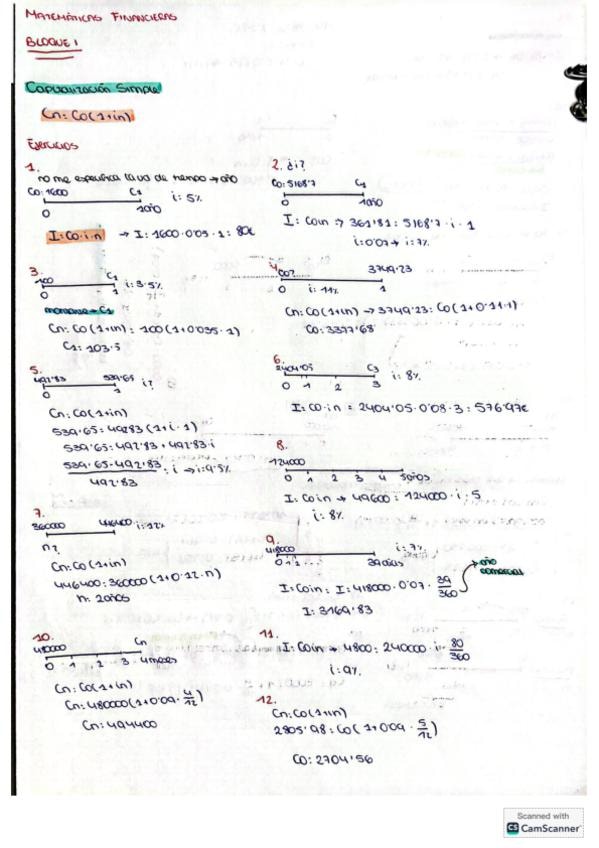 MATEMÁTICAS FINANCIERAS
BLOQUE 1
Capitalización Simple
Cn: Co(1+in)
Ejercicios
1.
no me especifica la ud de tiempo → año
Co: 1600 C1 i: 5%
0 1año
I: Co·i·n → I: 1600·0'05·1: 80€
2. ¿i?
Co: 5168'7 C1
0 1año
I: Coin → 361'81: 5168'7·i·1
i: 0'07 → i: 7%
3.
100 C1 i: 3.5%
0 1
montante → C1
Cn: Co(1+in): 100(1+0'035·1)
C1: 103.5
4.
Co? 3749.23
0 i: 11% 1
Cn: Co(1+in) → 3749.23: Co(1+0'11·1)
Co: 3377'68
5.
492'83 539'65 i?
0 1
Cn: Co(1+in)
539'65: 492'83(1+i·1)
539'65: 492'83+492'83·i
539'65-492'83 : i → i: 9'5%
492'83
6.
2404'05 C3 i: 8%
0 1 2 3
I: Co·in = 2404'05·0'08·3: 576'97€
7.
360000 446400 i: 12%
n?
Cn: Co(1+in)
446400: 360000(1+0'12·n)
n: 2años
8.
124000
0 1 2 3 4 5años
I: Coin → 49600: 124000·i·5
i: 8%
9.
418000 i: 7%
0 1 2 39días
I: Coin: I: 418000·0'07· 39/360 → año comercial
I: 3169'83
10.
480000 Cn
0 1 2 3 4meses
Cn: Co(1+in)
Cn: 480000(1+0'09· 4/12)
Cn: 494400
11.
I: Coin → 4800: 240000·i· 80/360
i: 9%
12.
Cn: Co(1+in)
2805'98: Co(1+0'09· 5/12)
Co: 2704'56
Scanned with
CS CamScanner